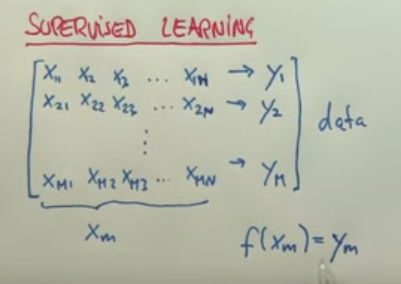 SUPERVISED LEARNING
X₁₁ X₂ X₃ ... X₁N → Y₁
X₂₁ X₂₂ X₂₃ ... X₂N → Y₂
⋮
XM₁ XM₂ XM₃ ... XMN → YM
data
Xm
f(Xm) = Ym